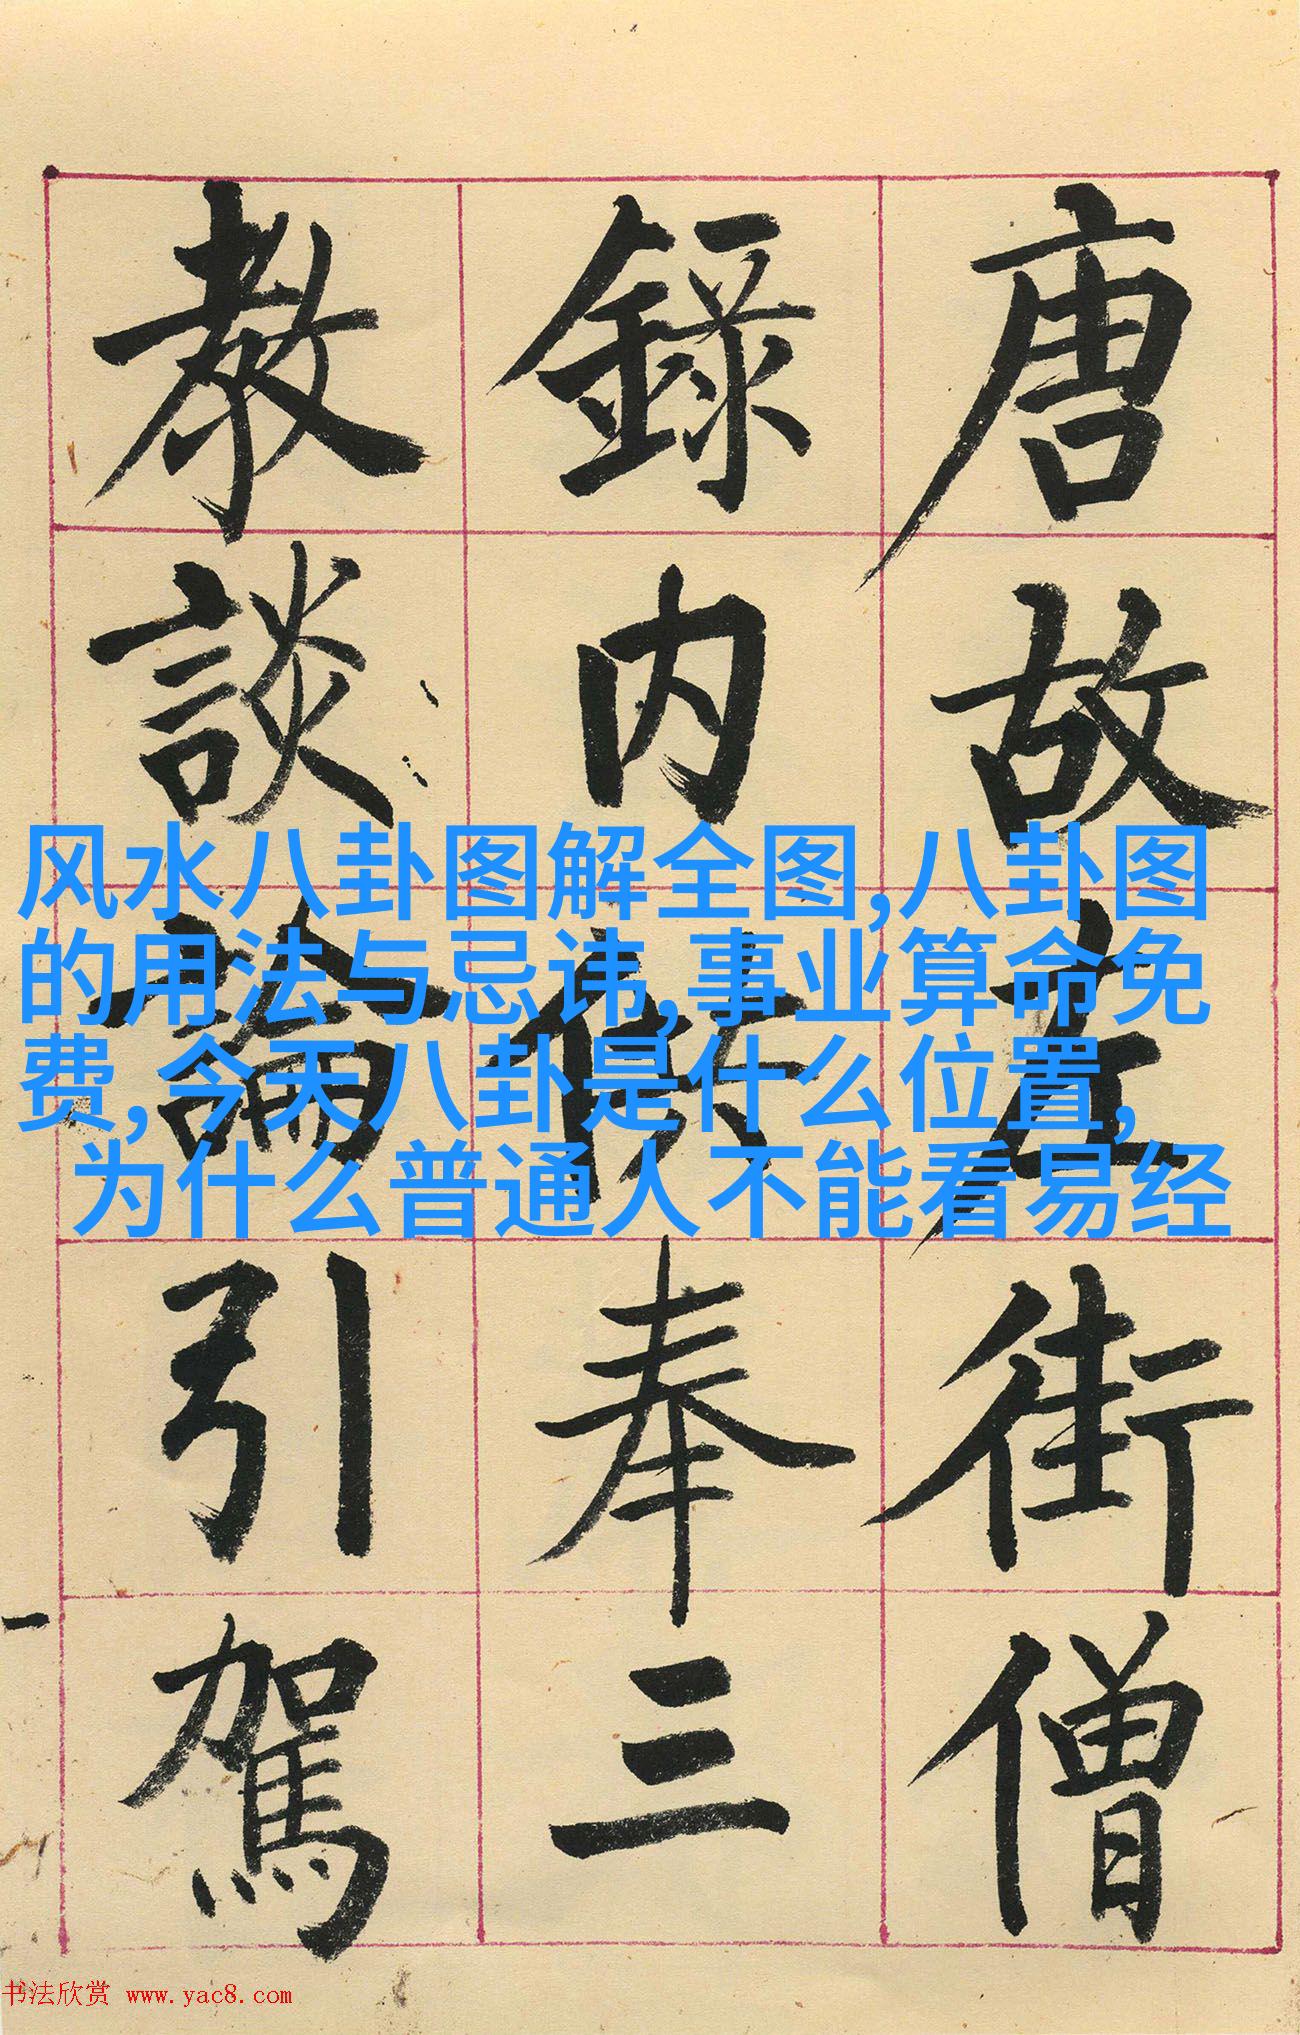 唐故左街僧
錄内供奉三
教談論引駕
风水八卦图解全图,八卦图
的用法与忌讳,事业算命免
费,今天八卦是什么位置,
为什么普通人不能看易经
书法欣赏 www.yac8.com